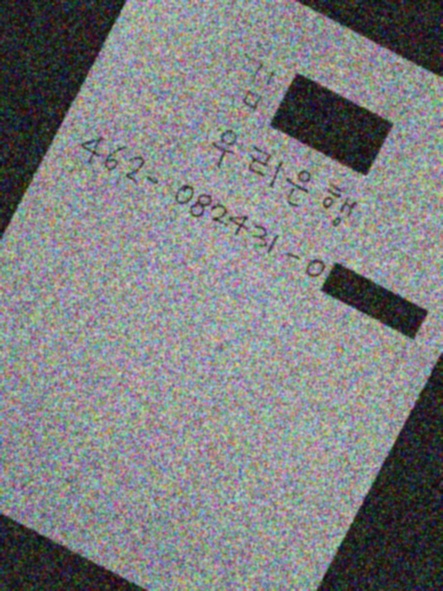 김
우리은행
462-082431-0